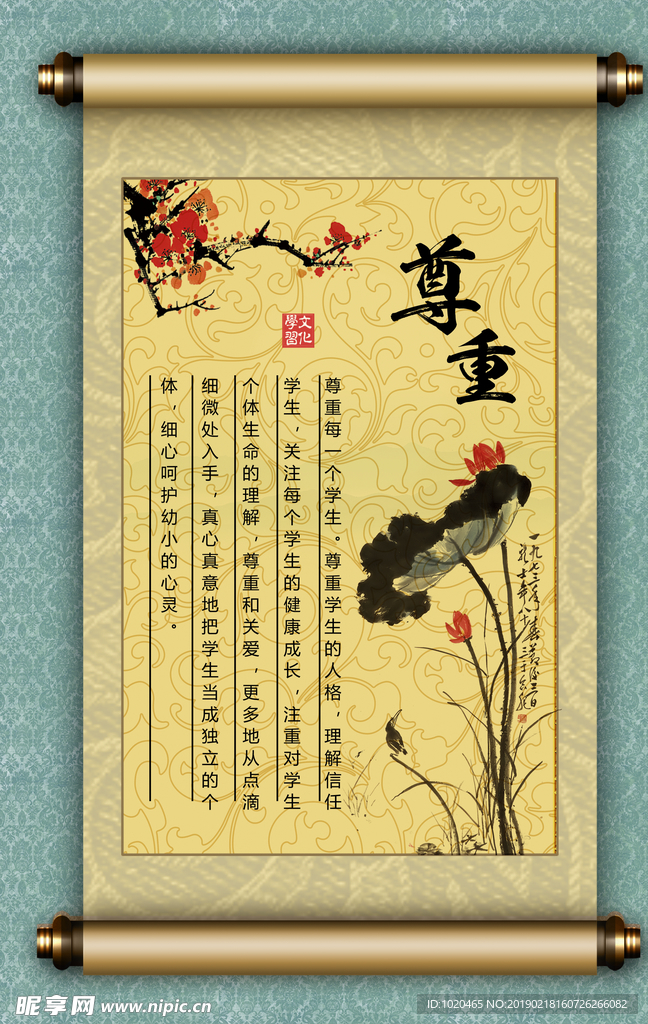 尊重
文化
學習
尊重每一个学生。尊重学生的人格，理解信任
学生，关注每个学生的健康成长，注重对学生
个体生命的理解，尊重和关爱，更多地从点滴
细微处入手，真心真意地把学生当成独立的个
体，细心呵护幼小的心灵。
昵享网 www.nipic.cn
ID:1020465 NO:20190218160726266082